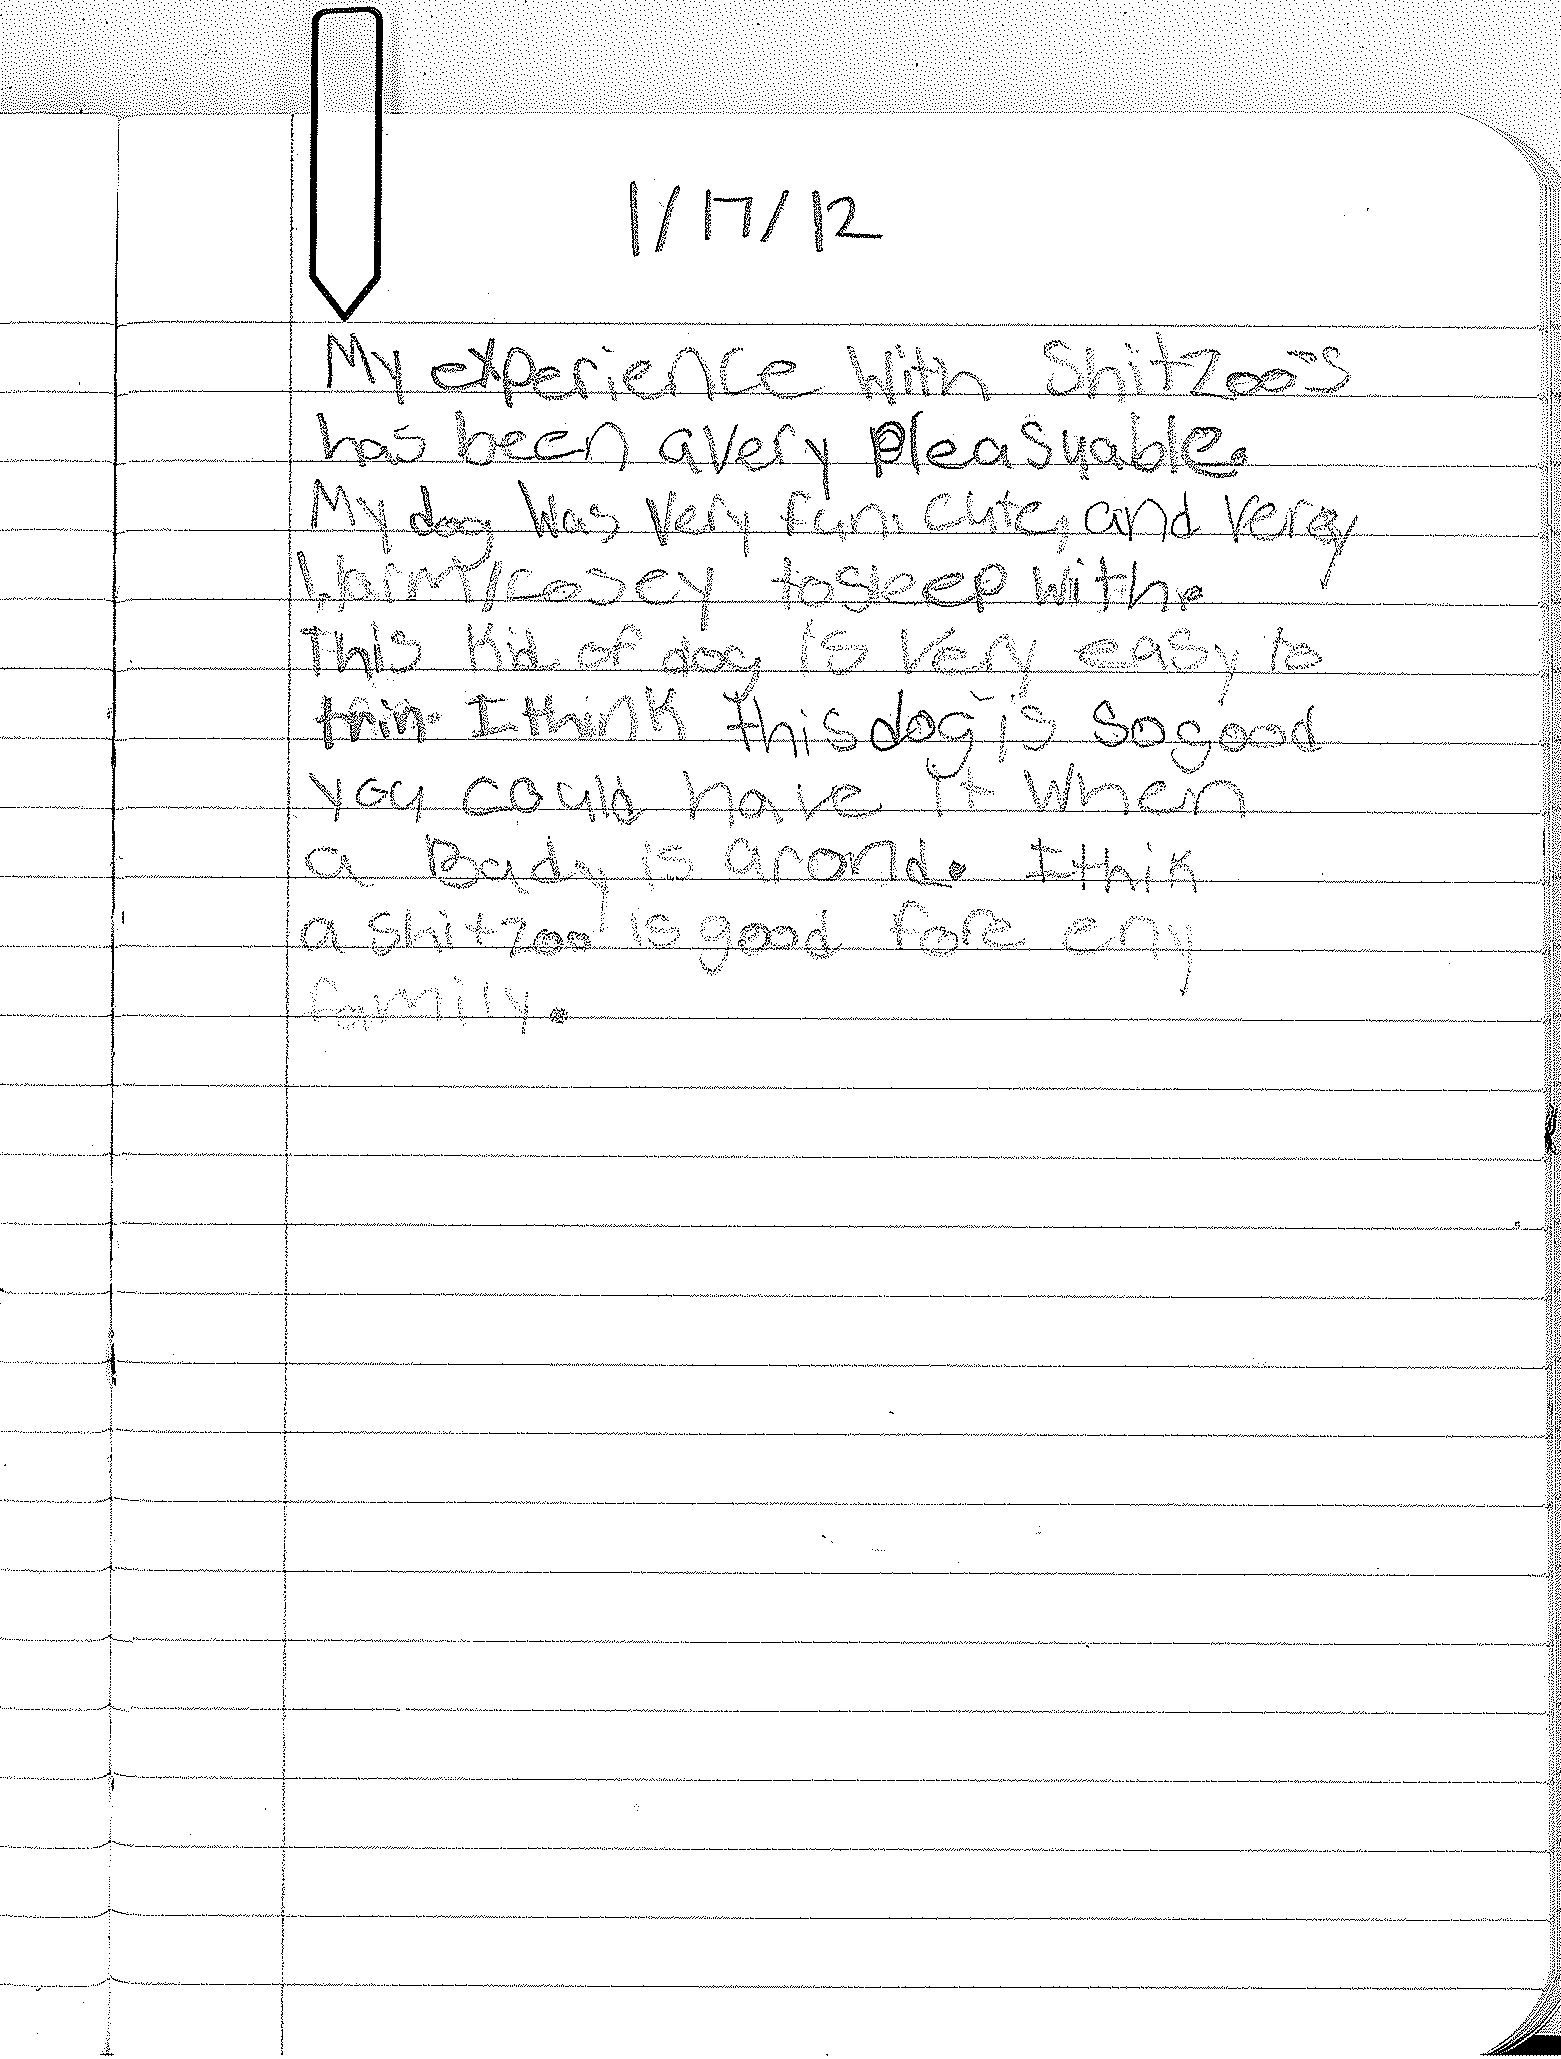 1/17/12
My experience with Shitzoo's
has been a very pleasuable.
My dog was very fun, cute, and very
warm/cosey to sleep with.
This Kid of dog is very easy to
trin. I think this dog is so good
you could have it when
a Bady is arond. I thik
a shitzoo is good fore eny
family.